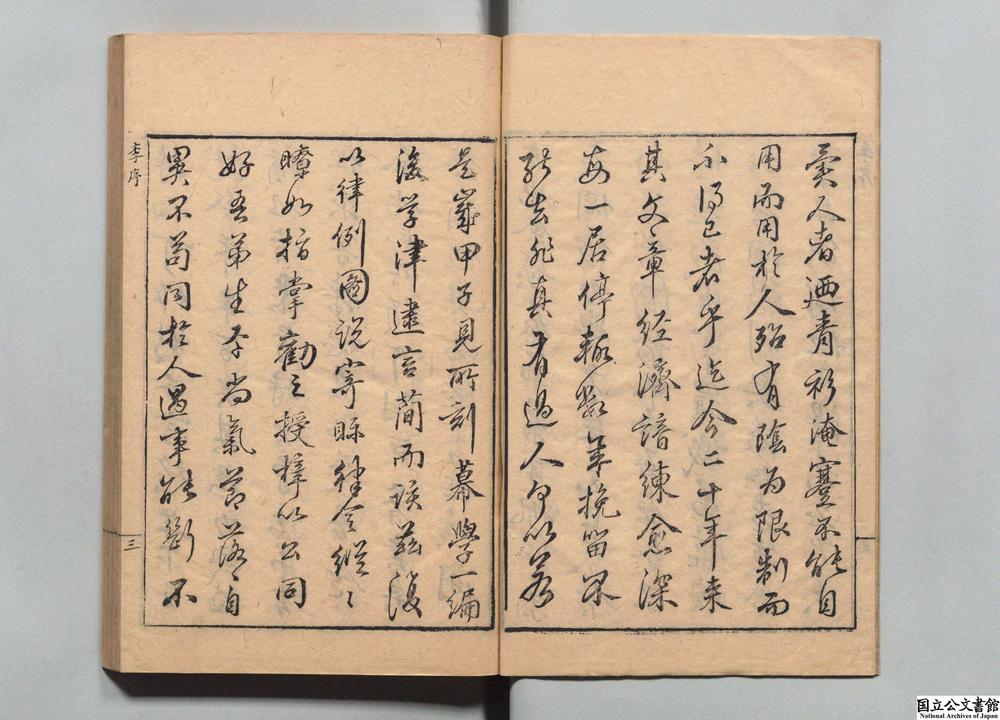 異人者迺青衫淹蹇不能自
用而用於人殆有陰為限制而
不得已者乎迄今二十年来
其文章経濟諳練愈深
每一居停輒數年挽留不
能去非真有過人何以若
是歲甲子見所刻幕學一編
後学津逮言簡而該茲復
以律例圖說寄眎律令縱々
瞭如指掌勸之授梓以公同
好吾弟生平尚氣節落々自
異不苟同於人遇事能斷不
李序
三
国立公文書館
National Archives of Japan